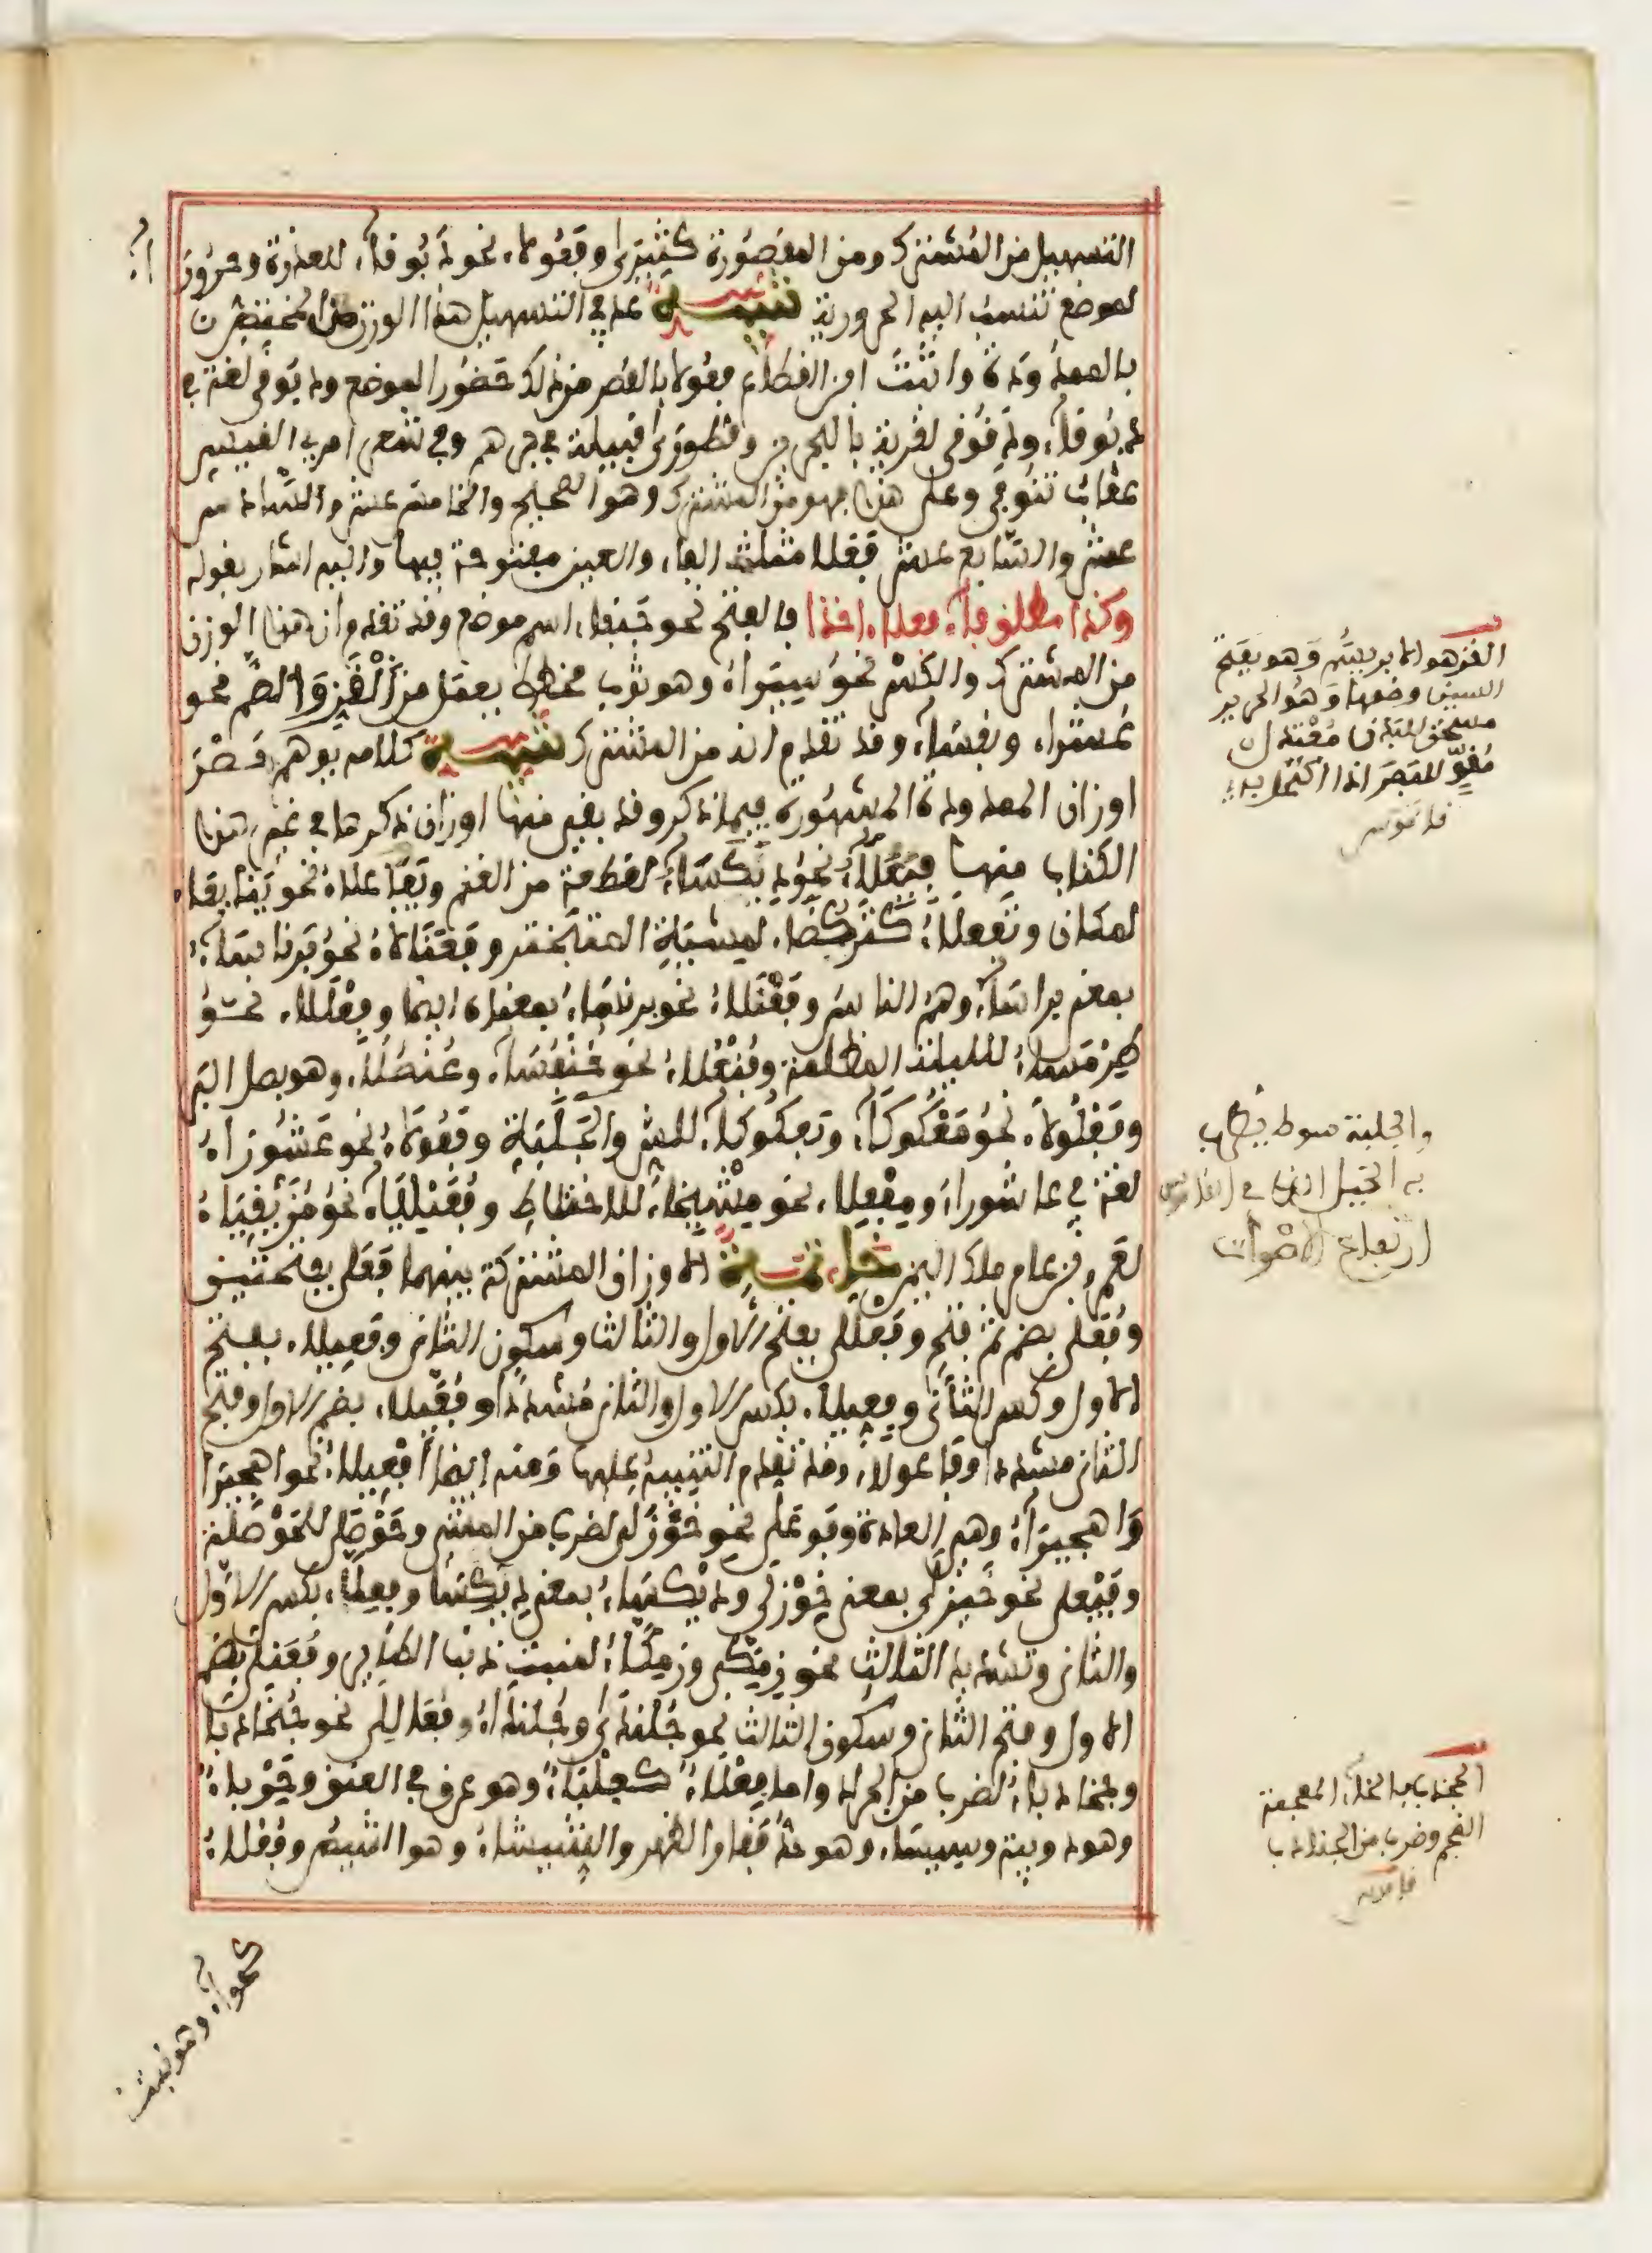 التسهيل من المشترك ومن المقصورة كثيرى وفعولاء نحو دبوقاء للعذرة وحرورا
ء
لموضع تنسب اليه الحرورية تنبيه عد في التسهيل هذا الوزن من المختص
بالممدودة واثبت ابن القطاع فعولا بالقصر من ذلك حضورا لموضع ودبوقى لغة في
دبوقاء ودقوقى لقرية بالبحرين وقطورى قبيلة في جرهم وفي شعر امرئ القيس
عقاب تنوفى وعلى هذا فهو من المشترك وهو الصحيح والخامس عشر والسادس
عشر والسابع عشر فعلا مثلث الفاء والعين مفتوحة فيها واليه اشار بقوله
وكذا مطلق فاء فعلاء اخذا فالفتح نحو جنفاء اسم موضع وقد تقدم ان هذا الوزن
من المشترك والكسر نحو سيراء وهو ثوب مخطط يعمل من القز والضم نحو
عشراء ونفساء وقد تقدم انه من المشترك تنبيه كلامه يوهم حصر
اوزان الممدودة المشهورة فيما ذكر وقد بقي منها اوزان ذكرها في غير هذا
الكتاب منها فيعلاء نحو ديكساء لقطعة من الغنم ويفاعلاء نحو ينابعاء
لمكان وتفعلاء كتركضاء لمشية المتبختر وفعنالاء نحو برناساء
بمعنى براساء وهم الناس وفعنلاء نحو برنساء بمعناه ايضا وفعللاء نحو
طرمساء لليلة المظلمة وفنعلاء نحو خنفساء وعنصلاء وهو بصل البر
وفعلولاء نحو معكوكاء وبعكوكاء للشر والجلبة وفعولاء نحو عشوراء
لغة في عاشوراء ومفعلاء نحو مشيخاء للاختلاط وفعيلياء نحو مزيقياء
لعمرو بن عامر ملك اليمن خاتمة الاوزان المشتركة بينهما فعلى بفتحتين
وفعلى بضم ثم فتح وفعللى بفتح الاول والثالث وسكون الثاني وفعيلا بفتح
الاول وكسر الثاني وفعيلا بكسر الاول والثاني مشددا وفعيلا بضم الاول وفتح
الثاني مشددا وفاعولاء وقد تقدم التنبيه عليها ومنه ايضا افعيلاء نحو اهجيرا
واهجيراء وهي العادة وفوعلى نحو خوزلى لضرب من المشي وحوصلى للحوصلة
وفيعلى نحو خيزلى بمعنى خوزلى وديكساء بمعنى ديكسا وفعلاء بكسر الاول
والثاني وتشديد الثالث نحو زمكى وزمكاء لمنبت ذنب الطائر وفعنلى بضم
الاول وفتح الثاني وسكون الثالث نحو جلندى وجلنداء وفعاللى نحو جخادبا
وجخادباء لضرب من الجراد واما فعلاء كعلباء وهو عرق في العنق وحرباء
وهو دويبة وسيساء وهو حد فقار الظهر والشيشاء وهو الشيص وفعلاء
كحواء وهو نبت
القز هو الابريسم وهو بفتح
السين وضمها وهو الحرير
مسخن للبدن معتدل
مقو للبصر اذا اكتحل به
قاموس
والجلبة سوط يضرب
به الخيل
ارتفاع الاصوات
الجخدب بالخاء المعجمة
الضخم وضرب من الجنادب
قاموس